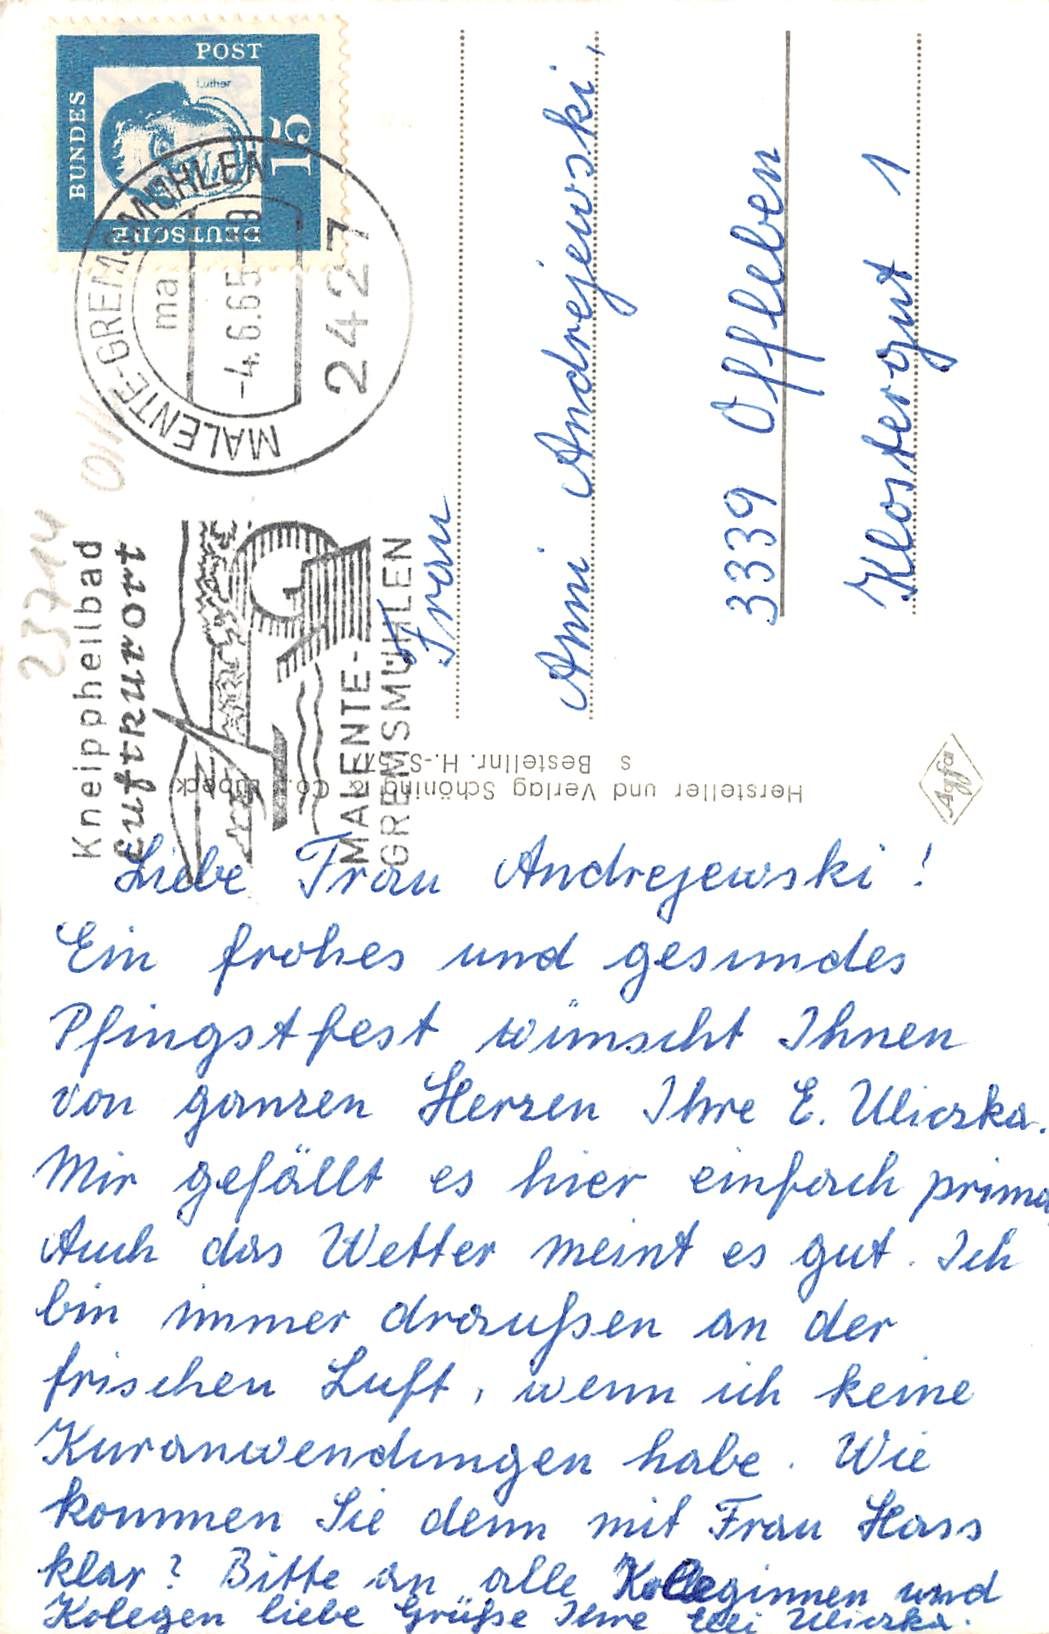 DEUTSCHE
BUNDES
POST
Luther
15
MALENTE-GREMSMÜHLEN
ma
-4.6.65-
2427
Kneippheilbad
Luftkurort
MALENTE-
GREMSMÜHLEN
23714
Frau
Anni Andrejewski,
3339 Offleben
Klostergut 1
Hersteller und Verlag Schöning & Co., Lübeck
s Bestellnr. H.-S.
Agfa
Liebe Frau Andrejewski!
Ein frohes und gesundes
Pfingstfest wünscht Ihnen
von ganzen Herzen Ihre E. Uliczka.
Mir gefällt es hier einfach prima
Auch das Wetter meint es gut. Ich
bin immer draußen an der
frischen Luft, wenn ich keine
Kuranwendungen habe. Wie
kommen Sie denn mit Frau Hass
klar? Bitte an alle Kolleginnen und
Kolegen liebe Grüße Ihre Elli Uliczka.